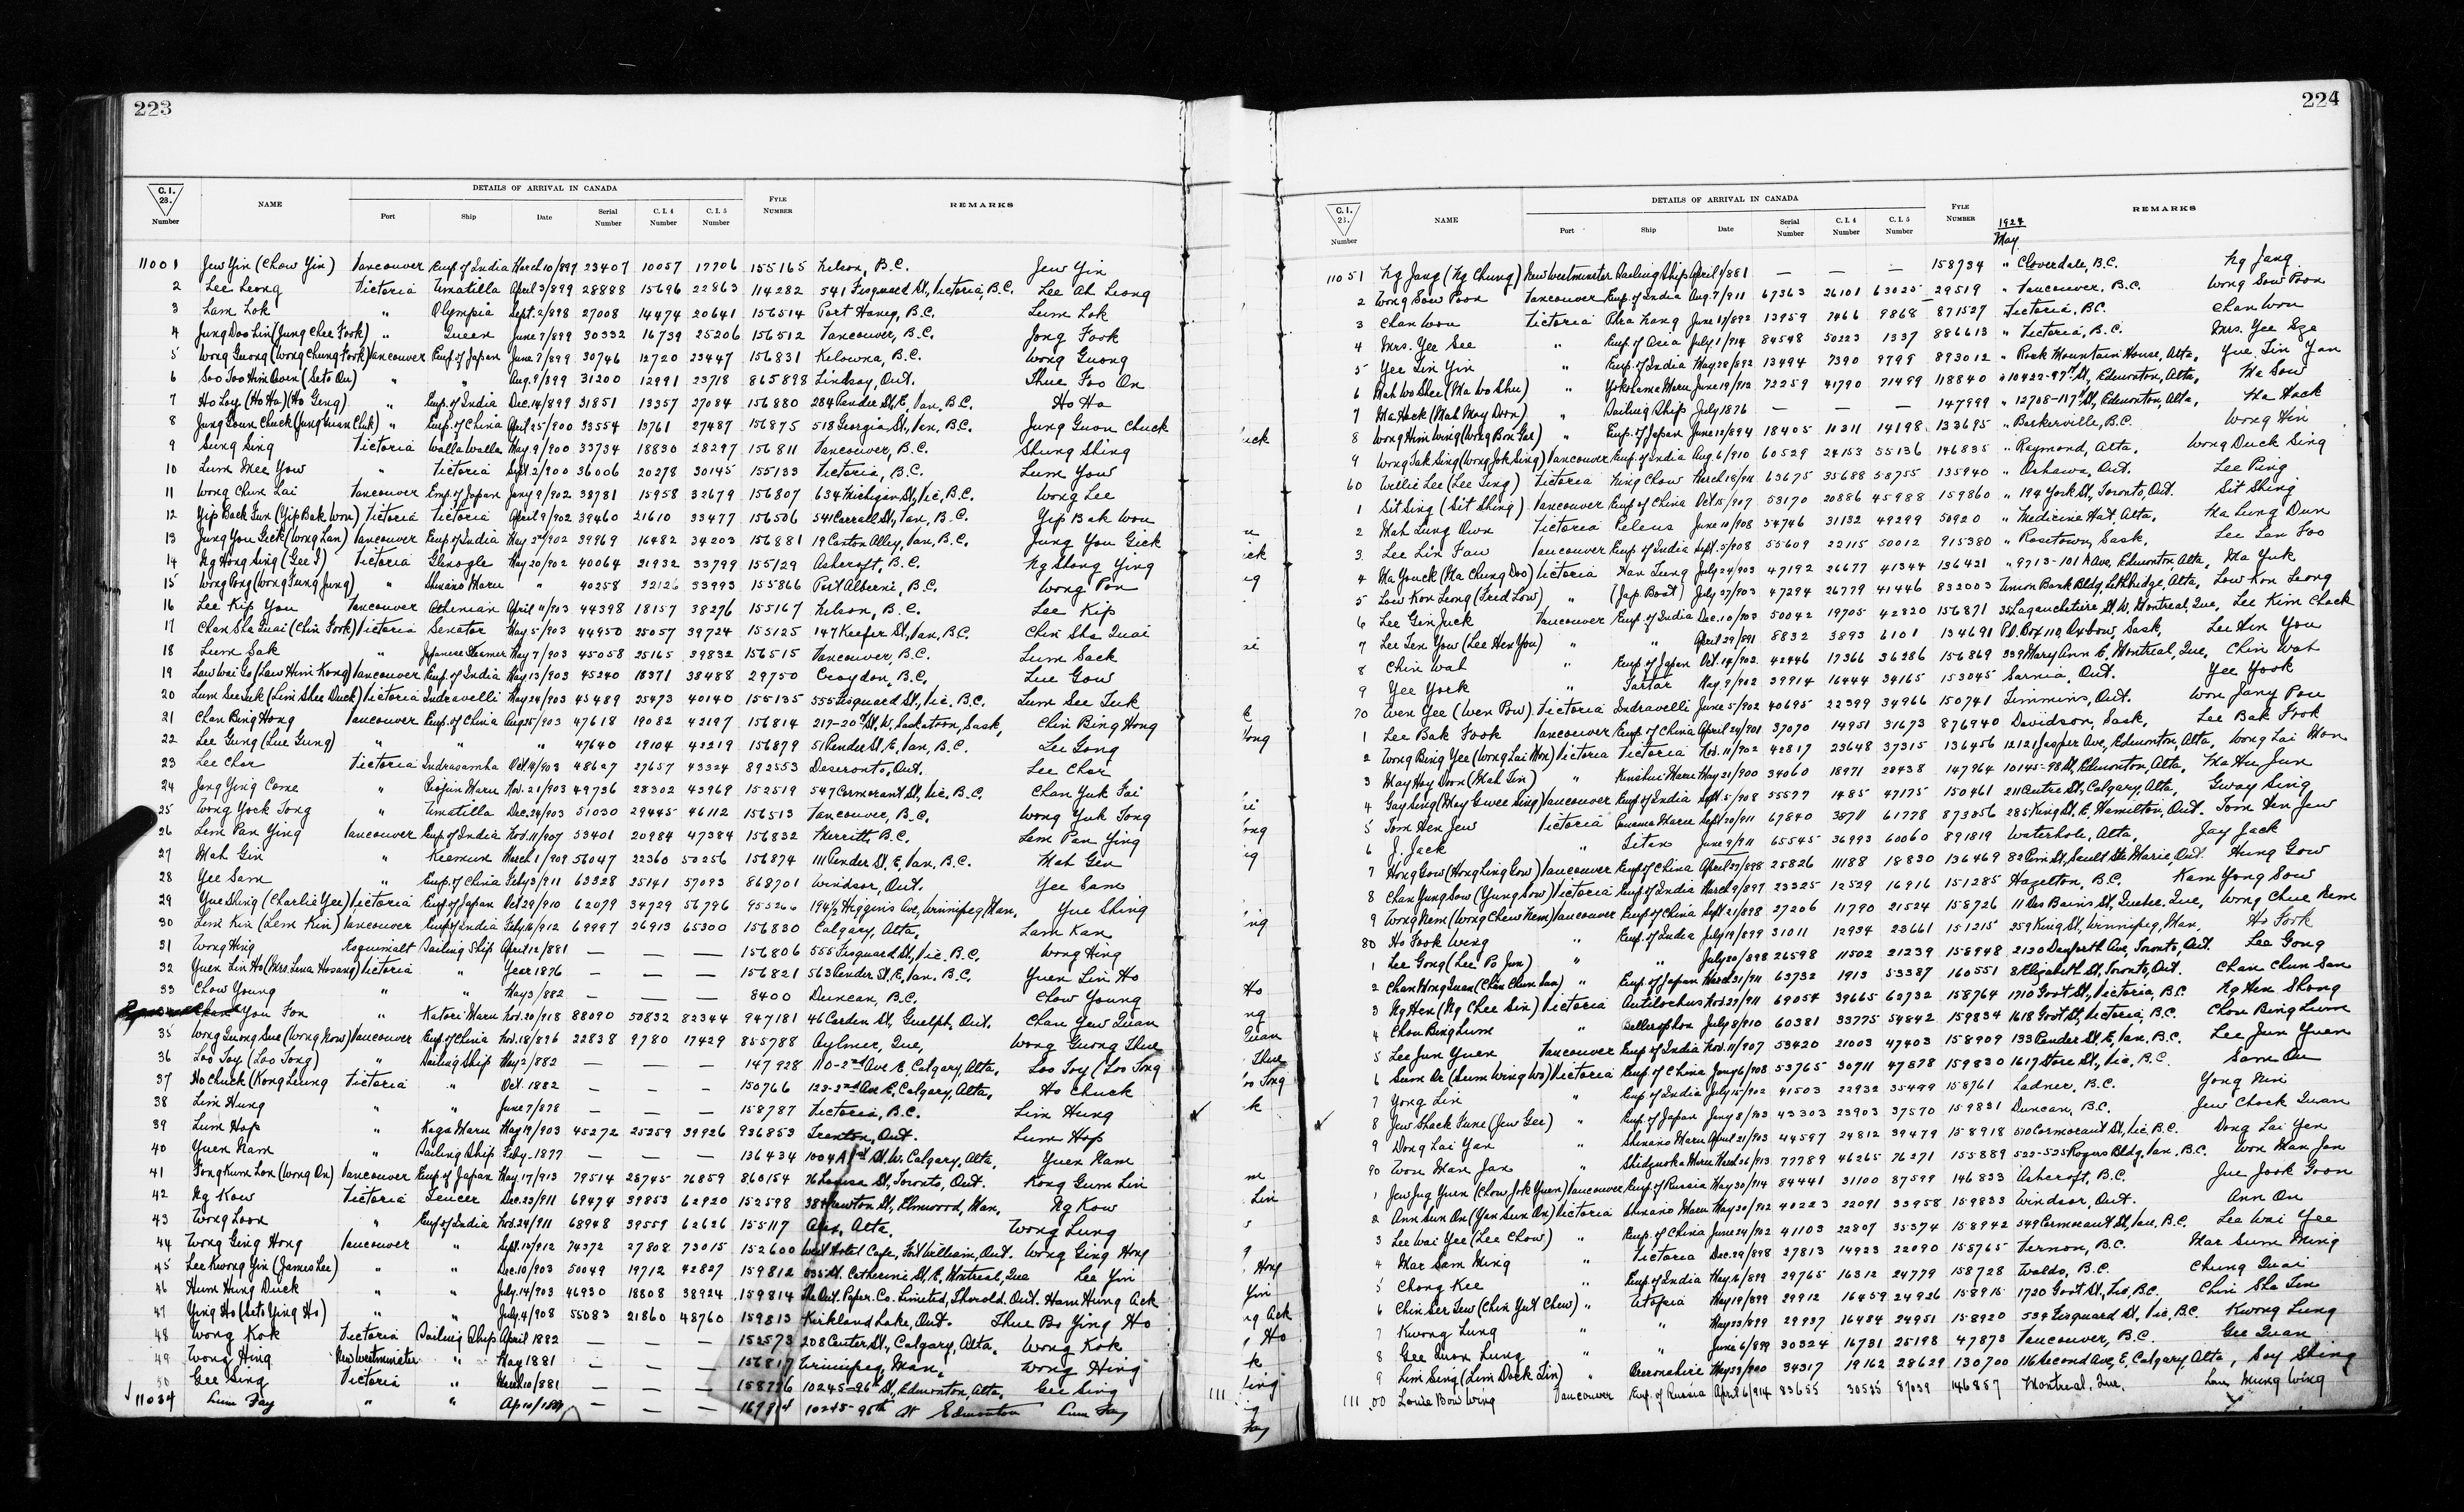 223
C.I. 28. Number NAME DETAILS OF ARRIVAL IN CANADA FYLE NUMBER REMARKS
Port Ship Date Serial Number C.I.4 Number C.I.5 Number
11001 Jew Yin (Chow Yin) Vancouver Emp. of India March 10/897 23407 10057 17706 155165 Nelson, B.C. Jew Yin
2 Lee Leong Victoria Umatilla April 3/899 28888 15696 22863 114282 541 Fisguard St., Victoria, B.C. Lee Ah Leong
3 Lam Lok " Olympia Sept. 2/898 27008 14474 20641 156514 Port Haney, B.C. Lum Lok
4 Jung Doo Lin (Jung Chee Fook) " Queen June 7/899 30332 16739 25206 156512 Vancouver, B.C. Jong Fook
5 Wong Guong (Wong Chung Fook) Vancouver Emp. of Japan June 7/899 30746 12720 23447 156831 Kelowna, B.C. Wong Guong
6 Soo Too Him Owen (Seto On) " " Aug. 9/899 31200 12991 23718 865898 Lindsay, Ont. Thue Foo On
7 Ho Loy (Ho Ha) (Ho Geng) " Emp. of India Dec. 14/899 31851 13357 27084 156880 284 Pender St. E., Van. B.C. Ho Ha
8 Jung Goun Chuck (Jung Guan Chuk) " Emp. of China April 25/900 33554 13761 27487 156875 518 Georgia St., Van. B.C. Jung Guon Chuck
9 Sing Sing Victoria Walla Walla May 9/900 33734 18830 28297 156811 Vancouver, B.C. Shung Shing
10 Lum Mee Yow " Victoria Sept. 2/900 36006 20278 30145 155133 Victoria, B.C. Lum Yow
11 Wong Chun Lai Vancouver Emp. of Japan Jany 9/902 38781 15958 32679 156807 634 Michigan St., Vic. B.C. Wong Lee
12 Yip Back Gun (Yip Bak Won) Victoria Victoria April 9/902 39460 21610 33477 156506 541 Carrall St., Van. B.C. Yip Bak Won
13 Jung You Geck (Wong Lan) Vancouver Emp. of India May 2nd/902 39969 16482 34203 156881 19 Canton Alley, Van. B.C. Jung You Gick
14 Ng Hong Sing (Gee I) Victoria Glenogle May 20/902 40064 21932 33799 155129 Ashcroft, B.C. Ng Slong Ying
15 Wong Pong (Wong Fung Jung) " Shinano Maru " 40258 22126 33993 155866 Port Alberni, B.C. Wong Pon
16 Lee Kip You Vancouver Athenian April 11/903 44398 18157 38276 155167 Nelson, B.C. Lee Kip
17 Chan Sha Quai (Chin Fook) Victoria Senator May 5/903 44950 25057 39724 155125 147 Keefer St., Van, B.C. Chin Sha Quai
18 Lum Sak " Japanese Steamer May 7/903 45058 25165 39832 156515 Vancouver, B.C. Lum Sack
19 Law Wai Go (Law Him Kong) Vancouver Emp. of India May 13/903 45240 18371 38488 29750 Croydon, B.C. Lue Gow
20 Lum See Tuk (Lim Shee Duck) Victoria Indravelli May 24/903 45489 25473 40140 155135 555 Fisguard St., Vic. B.C. Lum See Tuk
21 Chan Bing Hong Vancouver Emp. of China Aug 25/903 47618 19082 42197 156814 217-20th St. W. Saskatoon, Sask. Chin Bing Hong
22 Lee Gung (Lue Gung) " " " 47640 19104 42219 156879 51 Pender St. E. Van, B.C. Lee Gong
23 Lee Chor Victoria Indrasamha Oct 14/903 48627 27657 43324 892553 Deseronto, Ont. Lee Chor
24 Jong Ying Come " Riojun Maru Nov. 21/903 49736 28302 43969 152519 547 Cormorant St., Vic. B.C. Chan Yuk Fai
25 Wong Yock Tong " Umatilla Dec. 24/903 51030 29445 46112 156513 Vancouver, B.C. Wong Yuk Tong
26 Lem Pan Ying Vancouver Emp. of India Nov. 11/907 53401 20984 47384 156832 Merritt, B.C. Lem Pan Jing
27 Mah Gin " Keemun March 1/909 56047 22360 50256 156874 111 Pender St. E. Van, B.C. Mah Gen
28 Yee Sam " Emp. of China Feby 3/911 63328 25141 57093 868701 Windsor, Ont. Yee Sam
29 Yue Shing (Charlie Yee) Victoria Emp. of Japan Oct 29/910 62079 34729 56796 955266 194½ Higgins Ave, Winnipeg, Man. Yue Shing
30 Lem Kin (Lem Kin) Vancouver Emp. of India Feby 16/912 69997 26913 65300 156830 Calgary, Alta. Lam Kan
31 Wong Hing Esquimalt Sailing Ship April 12/881 — — — 156806 555 Fisguard St., Vic. B.C. Wong Hing
32 Yuen Lin Ho (Mrs. Lena Hosang) Victoria " Year 1876 — — — 156821 563 Pender St. E. Van. B.C. Yuen Lin Ho
33 Chow Young " " May 3/882 — — — 8400 Duncan, B.C. Chow Young
You Fon " Katori Maru Nov. 20/918 88090 50832 82344 947181 46 Carden St., Guelph, Ont. Chan Yew Quan
35 Wong Quong Sue (Wong Now) Vancouver Emp. of China Nov. 18/896 22838 9780 17429 855788 Aylmer, Que, Wong Guong Thue
36 Loo Toy (Loo Tong) " Sailing Ship May 2/882 — — — 147928 110-2nd Ave E. Calgary, Alta. Loo Toy (Loo Tong
37 Ho Chuck (Kong Leung Victoria " Oct. 1882 — — — 150766 123-2nd Ave E. Calgary, Alta. Ho Chuck
38 Lim Hung " " June 7/878 — — — 158787 Victoria, B.C. Lim Hung
39 Lum Hop " Kaga Maru May 19/903 45272 25259 39926 936853 Trenton, Ont. Lum Hop
40 Yuen Nam " Sailing Ship Feby. 1877 — — — 136434 1004A 1st St. W. Calgary, Alta. Yuen Nam
41 Fong Kum Lon (Wong On) Vancouver Emp. of Japan May 17/913 79514 28745 76859 860154 76 Louisa St., Toronto, Ont. Kong Gum Lin
42 Ng Kow Victoria Teucer Dec. 23/911 69474 39853 62920 152598 Elmwood, Man. Ng Kow
43 Wong Loon " Emp. of India Nov. 24/911 68948 39559 62626 155117 Alta. Wong Lung
44 Wong Ging Hong Vancouver " Sept. 15/912 74372 27808 73015 152600 West Hotel Cafe, Fort William, Ont. Wong Ging Hong
45 Lee Kwong Yin (James Lee) " " Dec. 10/903 50049 19712 42827 159812 St. Catherine St. E, Montreal, Que Lee Yin
46 Hum Hung Duck " " July. 14/903 46930 18808 38924 159814 The Ont. Paper Co. Limited, Thorold. Ont. Ham Hung Ack
47 Ying Ho (Seto Ying Ho) " " July. 4/908 55083 21860 48760 159813 Kirkland Lake, Ont. Thue Bo Ying Ho
48 Wong Kok Victoria Sailing Ship April 1882 — — — 152573 208 Center St., Calgary, Alta. Wong Kok
49 Wong Hing New Westminster " May 1881 — — — 156817 Winnipeg, Man. Wong Hing
50 Gee Sing Victoria " March 10/881 — — — 158796 10245-96th St., Edmonton, Alta. Gee Sing
11034 Lum Fay " " Ap 10/ — — — 10245-96th St Edmonton Lum Fay
224
C.I. 28. Number NAME DETAILS OF ARRIVAL IN CANADA FYLE NUMBER REMARKS
Port Ship Date Serial Number C.I.4 Number C.I.5 Number
1924
May
11051 Ng Jang (Ng Chung) New Westminster Sailing Ship April 1/881 — — — 158734 " Cloverdale, B.C. Ng Jang
2 Wong Sow Poon Vancouver Emp. of India Aug. 7/911 67363 26101 63025 29519 " Vancouver, B.C. Wong Sow Poon
3 Chan Won Victoria Phra Nang June 17/892 13959 7466 9868 871527 Victoria, B.C. Chan Won
4 Mrs. Yee See " Emp. of Asia July 1/914 84548 50223 1337 886613 " Victoria, B.C. Mrs. Yee Sze
5 Yee Lin Yin " Emp. of India May 28/892 13494 7390 9799 893012 " Rock Mountain House, Alta. Yue Lin Yan
6 Mah Wo Shee (Ma Wo Shu) " Yokohama Maru June 19/912 72259 41790 71499 118840 " 10422-97th St., Edmonton, Alta. Ma Sow
7 Ma Hock (Mah May Doon) " Sailing Ship July 1876 — — — 147999 " 12708-117th St., Edmonton, Alta. Ma Hack
8 Wong Him Wing (Wong Bon Gar) " Emp. of Japan June 12/894 18405 10311 14198 133695 " Barkerville, B.C. Wong Hin
9 Wong Tak Sing (Wong Jok Sing) Vancouver Emp. of India Aug. 6/910 60529 24153 55136 146835 " Raymond, Alta. Wong Duck Sing
60 Willie Lee (Lee Sing) Victoria Ning Chow March 18/911 63675 35688 58755 135940 " Oshawa, Ont. Lee Ping
1 Sit Sing (Sit Shing) Vancouver Emp. of China Oct. 15/907 53170 20886 45988 159860 " 194 York St., Toronto, Ont. Sit Shing
2 Mah Lung Own Victoria Peleus June 10/908 54746 31132 49299 50920 " Medicine Hat, Alta. Ma Lung Dun
3 Lee Lin Faw Vancouver Emp. of India Sept. 5/908 55609 22115 50012 915380 " Rosetown, Sask. Lee Lan Foo
4 Ma Youck (Ma Chung Doo) Victoria Han Tung July 24/903 47192 26677 41344 136421 " 9713-101A Ave, Edmonton, Alta. Ma Yuk
5 Low Kon Leong (Fred Low) " (Jap. Boat) July 27/903 47294 26779 41446 832003 Union Bank Bldg, Lethbridge, Alta. Low Kon Leong
6 Lee Gin Juck Vancouver Emp. of India Dec. 10/903 50042 19705 42820 156871 Lagauchetiere St. W. Montreal, Que. Lee Kim Chack
7 Lee Ten Yow (Lee Hen You) " " April 29/891 8832 3893 6101 134691 P.O. Box 110, Oxbow, Sask. Lee Hin You
8 Chin Wah " Emp. of Japan Oct. 14/902 42446 17366 36286 156869 339 Mary Ann E, Montreal, Que. Chin Wah
9 Yee York " Tartar May. 9/902 39914 16444 34165 153045 Sarnia, Ont. Yee Yook
70 Wen Yee (Wen Pow) Victoria Indravelli June 5/902 40695 22399 34966 150741 Timmins, Ont. Won Jany Pow
1 Lee Bak Fook Vancouver Emp. of China April 24/901 37070 14951 31673 876940 Davidson, Sask. Lee Bak Fook
2 Wong Bing Yee (Wong Lai Mon) Victoria Victoria Nov. 11/902 42817 23648 37315 136456 12121 Jasper Ave, Edmonton, Alta. Wong Lai Hon
3 May Hay Doon (Mah Tin) " Kinshui Maru May 21/900 34060 18971 28438 147964 10145-98 St., Edmonton, Alta. Ma Hu Jun
4 Gay Sing (May Gwee Sing) Vancouver Emp. of India Sept. 5/908 55577 1485 47175 150461 211 Centre St., Calgary, Alta. Gway Sing
5 Tom Hen Jew Victoria Panama Maru Sept 20/911 67840 38711 61778 873056 285 King St. E. Hamilton, Ont. Tom Hen Jew
6 J. Jack " Titan June 9/911 65545 36993 60060 891819 Waterhole, Alta. Jay Jack
7 Hong Gow (Hong Ling Gow) Vancouver Emp. of China April 27/898 25826 11188 18830 136469 82 Pim St., Sault Ste Marie, Ont. Hung Gow
8 Chan Yung Sow (Yung Sow) Victoria Emp. of India March 9/897 23325 12529 16916 151285 Hazelton, B.C. Kam Yong Sow
9 Wong Nem (Wong Chew Nem) Vancouver Emp. of China Sept. 21/898 27206 11790 21524 158726 11 Des Bains St., Quebec, Que. Wong Chue Nem
80 Ho Fook Weng " Emp. of India July 19/899 31011 12934 23661 151215 259 King St., Winnipeg, Man. Ho Fook
1 Lee Gong (Lee Po Jun) " " July 20/898 26598 11502 21239 158948 2130 Danforth Ave, Toronto, Ont. Lee Gong
2 Chan Hong Quan (Chan Chun San) " Emp. of Japan March 31/911 63732 1913 53387 160551 81 Elizabeth St., Toronto, Ont. Chan Chun San
3 Ng Hen (Ng Chee Sin) Victoria Antilochus Nov. 27/911 69054 39665 62732 158764 1710 Govt St., Victoria, B.C. Ng Hen Shong
4 Chou Bing Lum " Bellerophon July 8/910 60381 33775 54842 159834 1618 Govt St., Victoria, B.C. Chou Bing Lum
5 Lee Jun Yuen Vancouver Emp. of India Nov. 11/907 53420 21003 47403 158909 133 Pender St. E, Van, B.C. Lee Jun Yuen
6 Sum Or (Sum Wing Wo) Victoria Emp. of China Jany 6/908 53765 30711 47878 159830 1617 Store St., Vic, B.C. Sam On
7 Yong Lin " Emp. of India July 15/902 41503 22932 35499 158761 Ladner, B.C. Yong Nin
8 Jew Shack Fune (Jew Gee) " Emp. of Japan Jany 8/903 43303 23903 37570 159831 Duncan, B.C. Jew Chock Quan
9 Dong Lai Yan " Shinano Maru April 21/903 44597 24812 39479 158918 510 Cormorant St., Vic B.C. Dong Lai Yen
90 Won Man Jan " Shidzuoka Maru March 26/913 77789 46265 76271 155889 522-525 Rogers Bldg, Van. B.C. Won Man Jan
1 Jew Jug Yuen (Chow Jok Yuen) Vancouver Emp. of Russia May 30/914 84441 31100 87599 146833 Ashcroft, B.C. Jue Jook Goon
2 Ann Sun On (Yan Sun On) Victoria Shinano Maru May 30/902 40223 22091 33958 159833 Windsor, Ont. Ann On
3 Lee Wai Yee (Lee Chow) " Emp. of China June 24/902 41103 22807 35374 158942 549 Cormorant St., Van, B.C. Lee Wai Yee
4 Mar Sam Ming " Victoria Dec. 29/898 27813 14923 22090 158765 Vernon, B.C. Mar Sum Ming
5 Chong Kee " Emp. of India May 16/899 29765 16312 24779 158728 Waldo, B.C. Chung Quai
6 Chin Ser Tew (Chin Yut Chew) " Utopia May 19/899 29912 16459 24926 158915 1720 Govt St., Vic, B.C. Chin Sha Tew
7 Kwong Lung " " May 23/899 29937 16484 24951 158920 539 Fisguard St., Vic B.C. Kwong Lung
8 Gee Quon Lung " " June 6/899 30324 16731 25198 47873 Vancouver, B.C. Gee Quan
9 Lim Seng (Lim Dock Lin) " Breconshire May 23/900 34317 19162 28629 130700 116 Second Ave, E, Calgary Alta, Soy Shing
11100 Louie Bow Wing Vancouver Emp. of Russia April 6/914 83655 30535 87039 146857 Montreal, Que. Lou Mung Wing